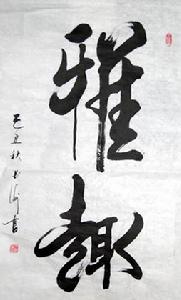 雅趣
己丑秋
书